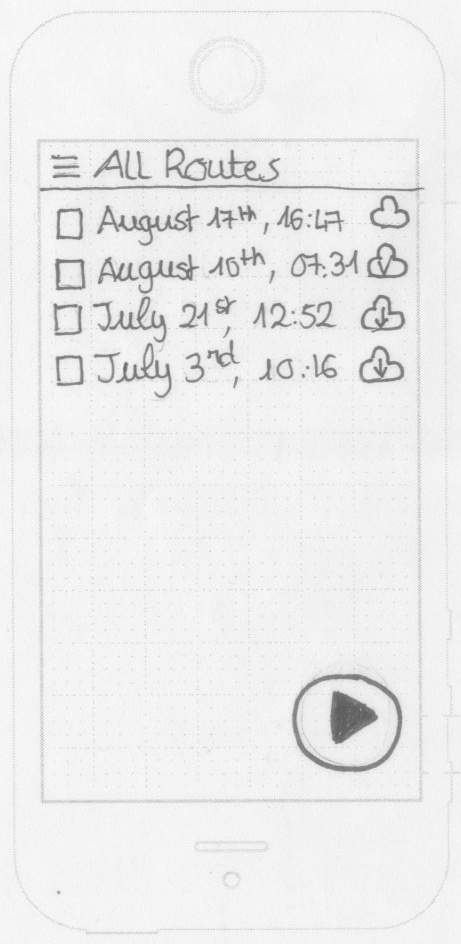 All Routes
August 17th, 16:47
August 10th, 07:31
July 21st, 12:52
July 3rd, 10:16